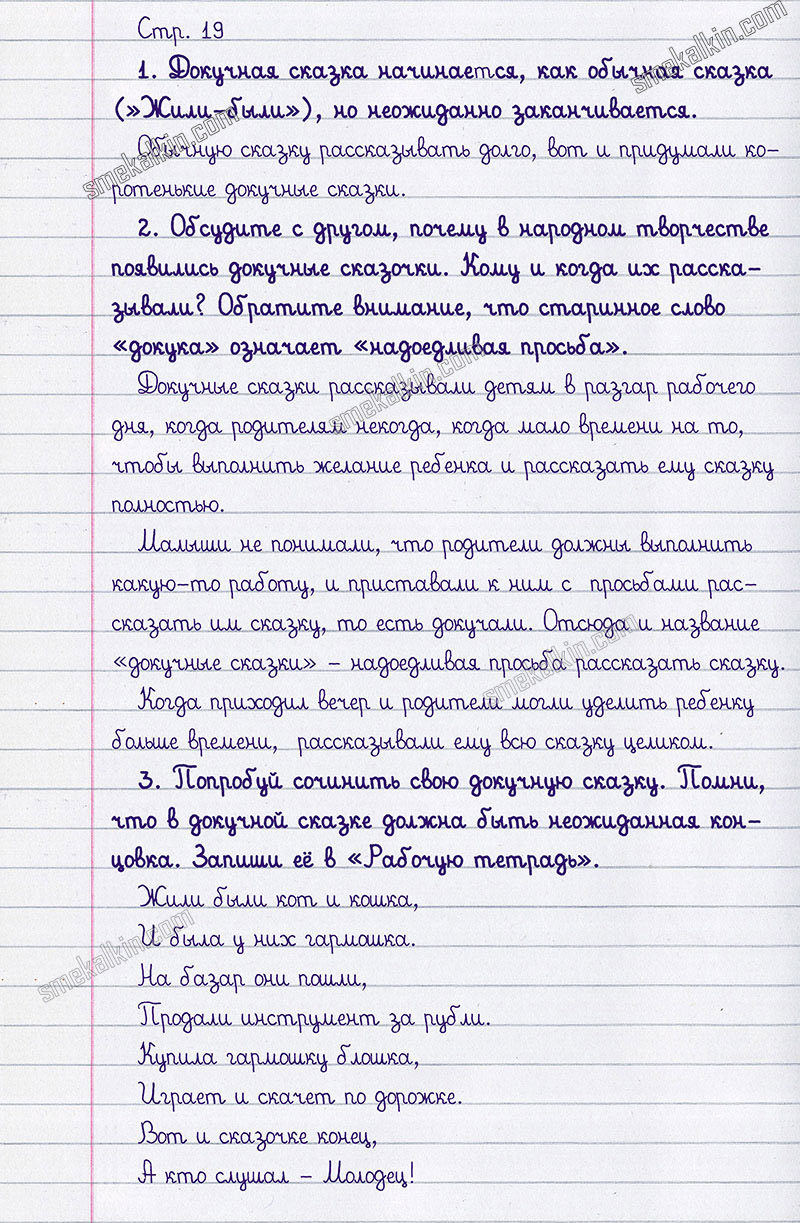 Стр. 19
1. Докучная сказка начинается, как обычная сказка
(»Жили-были»), но неожиданно заканчивается.
Обычную сказку рассказывать долго, вот и придумали ко-
ротенькие докучные сказки.
2. Обсудите с другом, почему в народном творчестве
появились докучные сказочки. Кому и когда их расска-
зывали? Обратите внимание, что старинное слово
«докука» означает «надоедливая просьба».
Докучные сказки рассказывали детям в разгар рабочего
дня, когда родителям некогда, когда мало времени на то,
чтобы выполнить желание ребенка и рассказать ему сказку
полностью.
Малыши не понимали, что родители должны выполнить
какую-то работу, и приставали к ним с просьбами рас-
сказать им сказку, то есть докучали. Отсюда и название
«докучные сказки» – надоедливая просьба рассказать сказку.
Когда приходил вечер и родители могли уделить ребенку
больше времени, рассказывали ему всю сказку целиком.
3. Попробуй сочинить свою докучную сказку. Помни,
что в докучной сказке должна быть неожиданная кон-
цовка. Запиши её в «Рабочую тетрадь».
Жили были кот и кошка,
И была у них гармошка.
На базар они пошли,
Продали инструмент за рубли.
Купила гармошку блошка,
Играет и скачет по дорожке.
Вот и сказочке конец,
А кто слушал – Молодец!
smekalkin.com
smekalkin.com
smekalkin.com
smekalkin.com
smekalkin.com